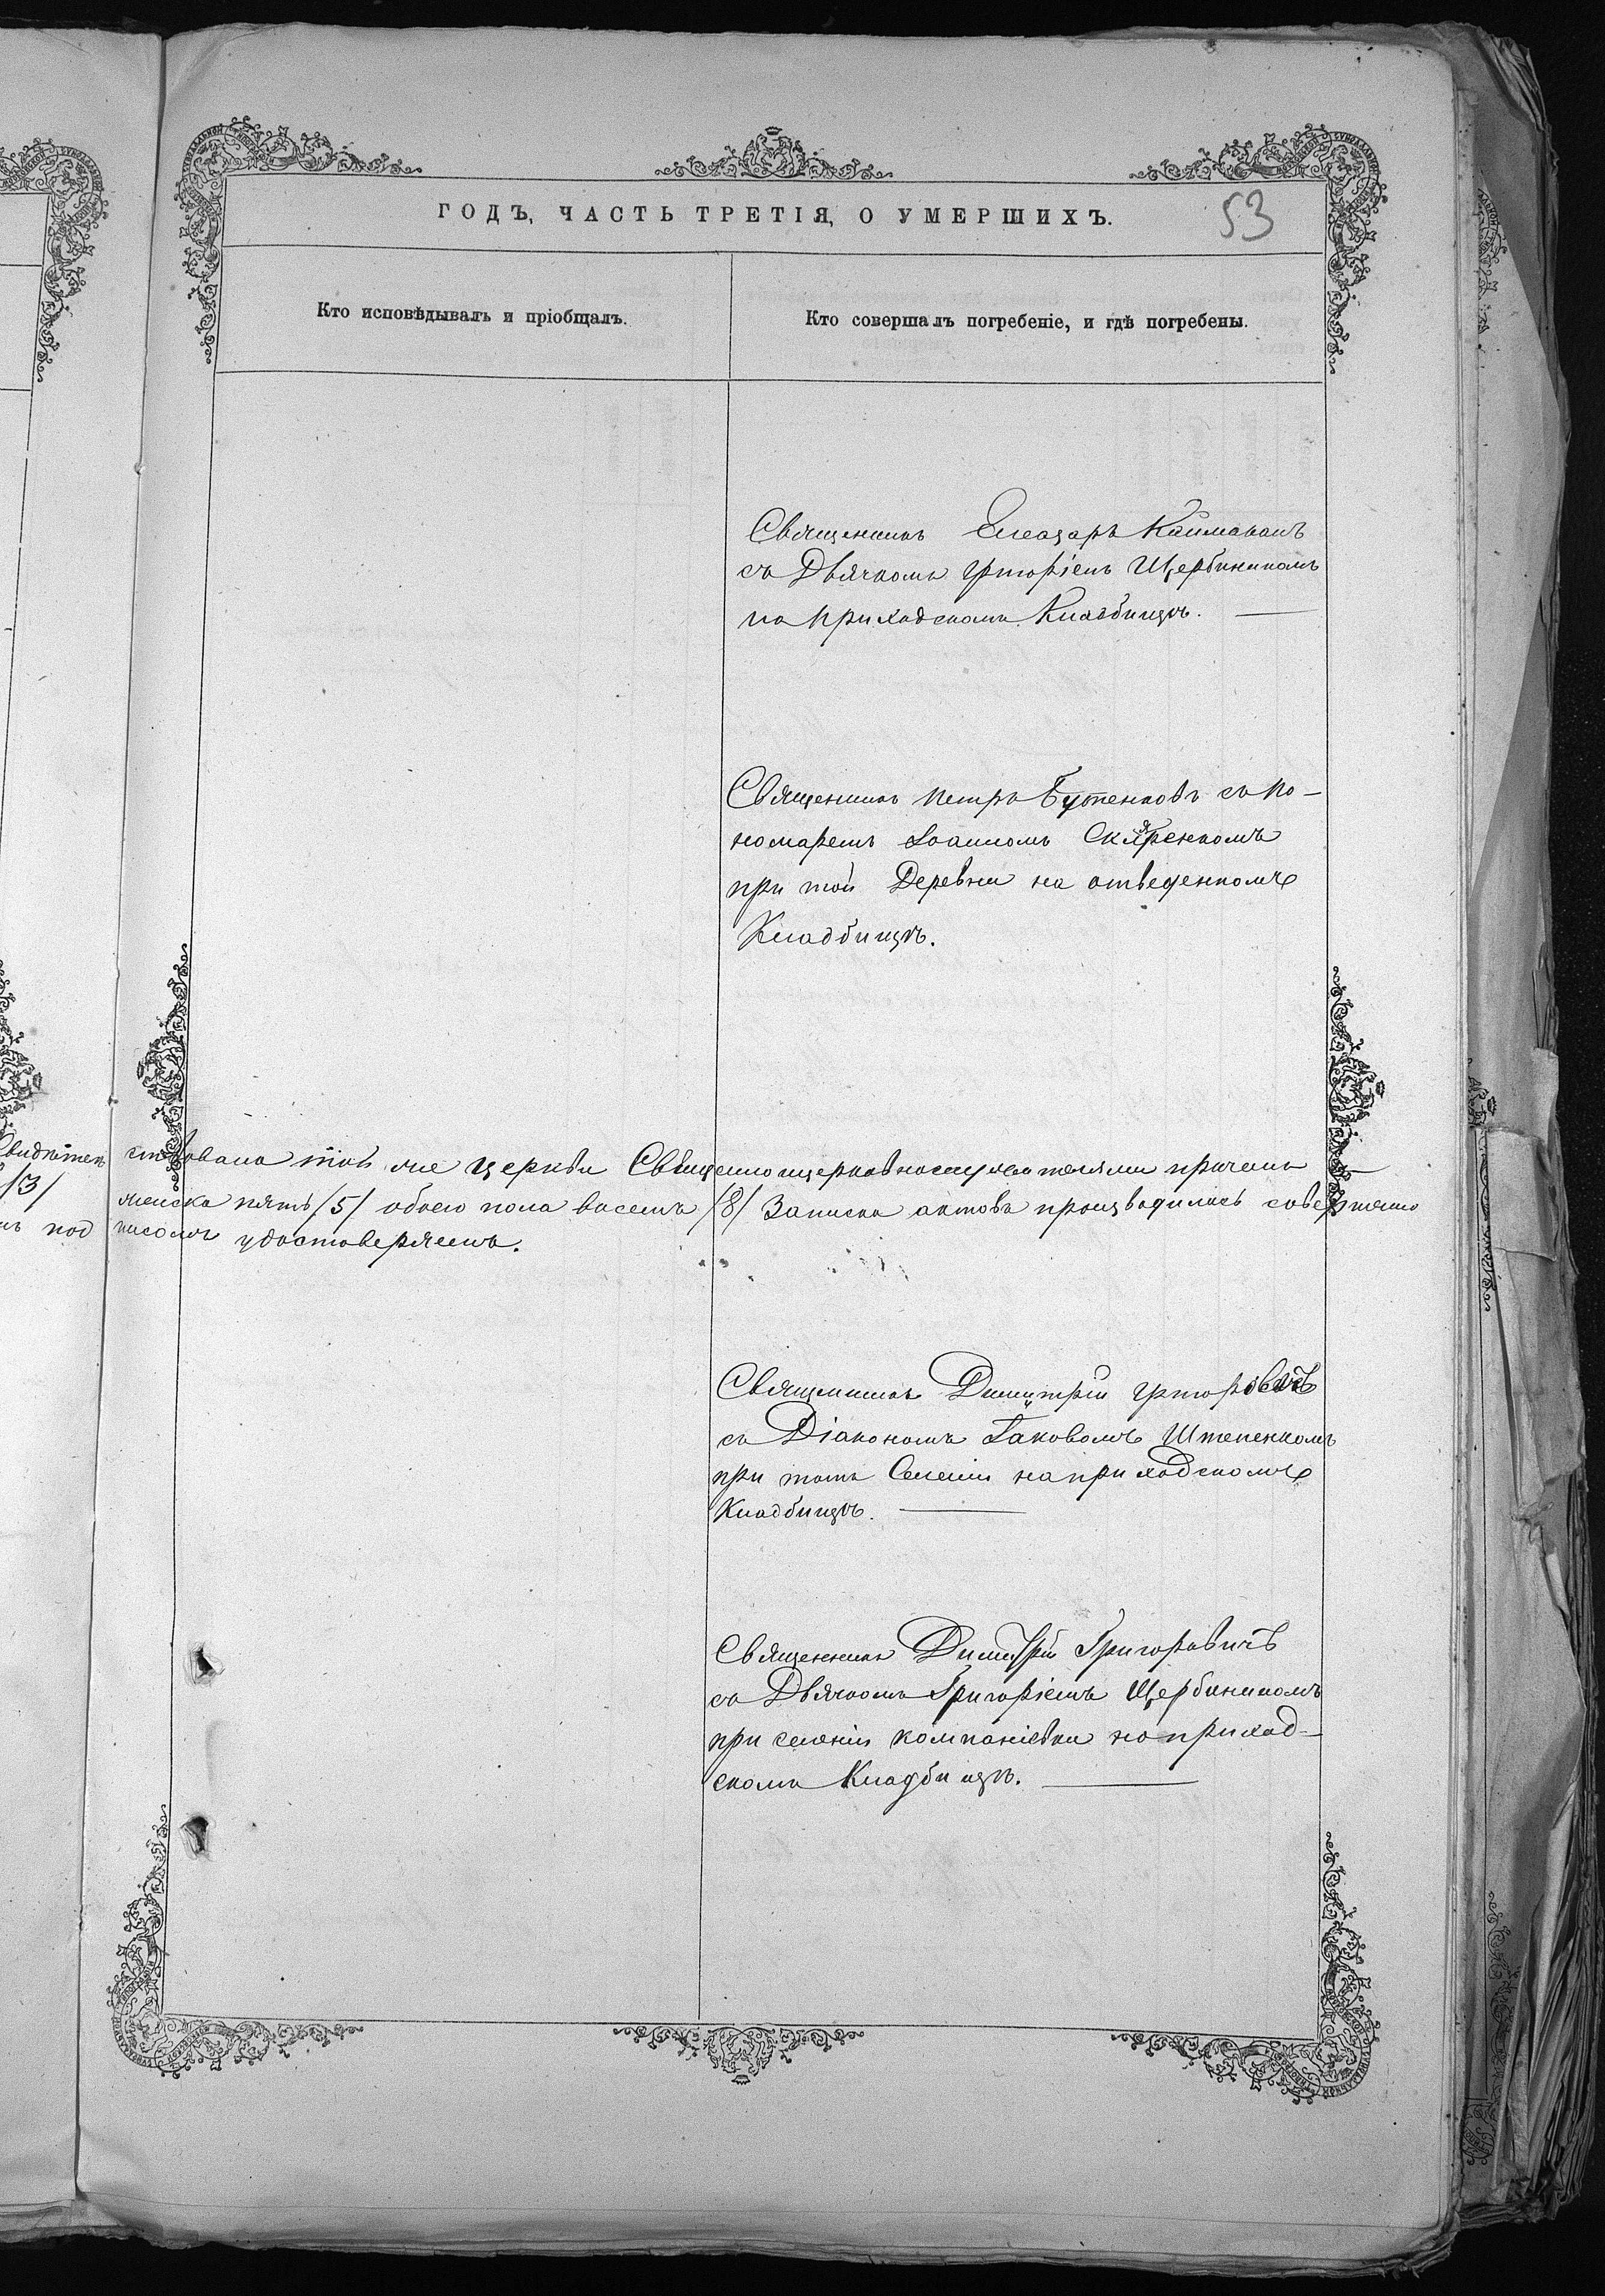 ГОДЪ, ЧАСТЬ ТРЕТІЯ, О УМЕРШИХЪ.
53
Кто исповѣдывалъ и пріобщалъ.
Кто совершалъ погребеніе, и гдѣ погребены.
Священникъ Елеазаръ Каймаканъ
съ Дьячкомъ Григоріемъ Щербининомъ
на приходскомъ Кладбищѣ.
Священникъ Петръ Бутенковъ съ По-
номаремъ Іоанномъ Скляренкомъ
при той Деревни на отведенномъ
Кладбищѣ.
Свидѣтель ствована той же церкви Священноцерковнослужителями причемъ
/3/ женска пять /5/ обоего пола восемъ /8/ Записка актовъ производилась совершенно
под писомъ удостоверяемъ.
Священникъ Димитрій Григоровичъ
съ Діакономъ Іаковомъ Штепенкомъ
при томъ Селеніи на приходскомъ
Кладбищѣ.
Священникъ Димитрій Григоровичъ
съ Дьячкомъ Григоріемъ Щербининомъ
при селеніи Компаніевки на приход-
скомъ Кладбищѣ.